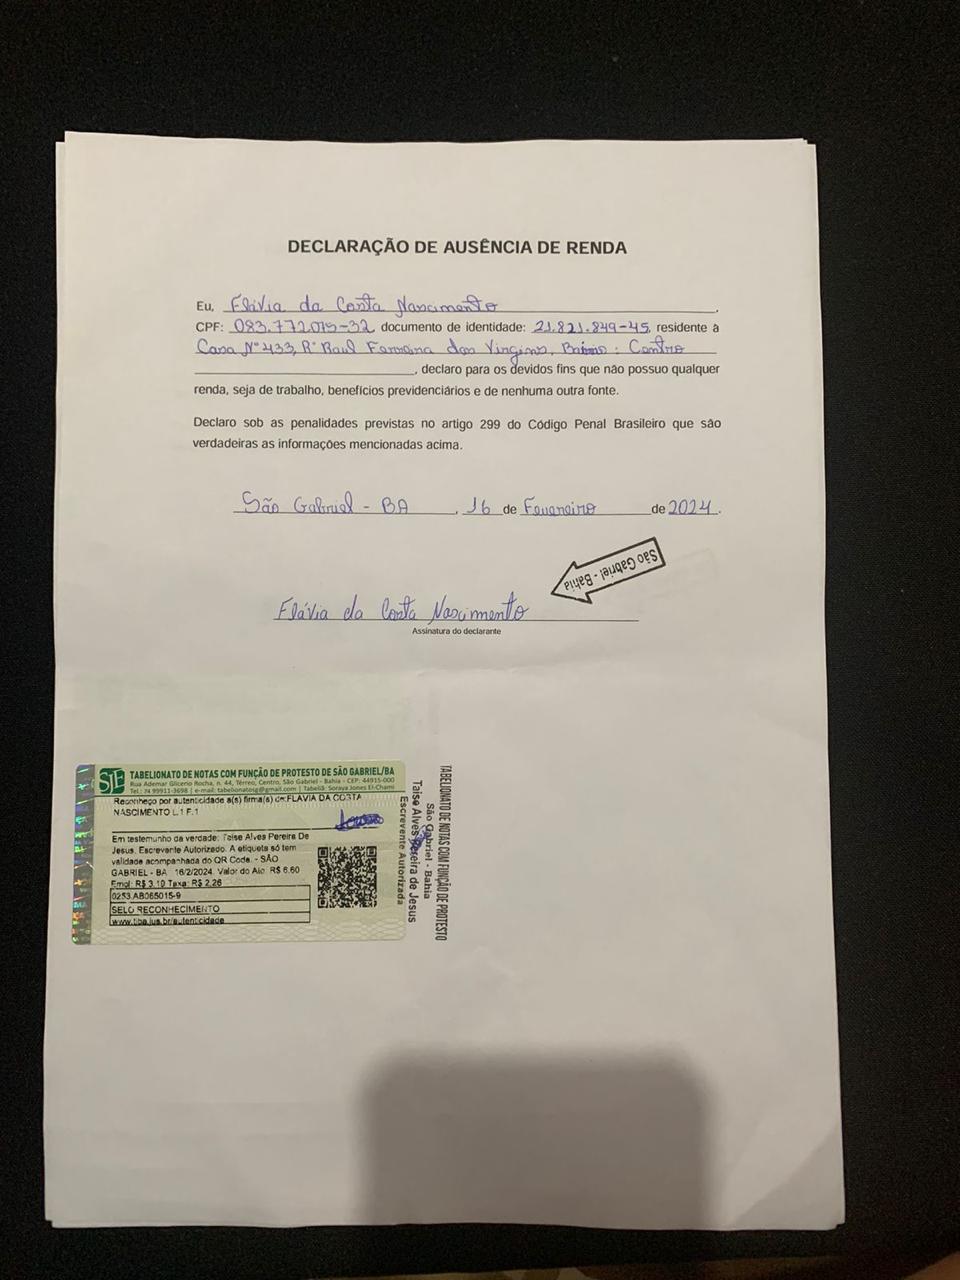 DECLARAÇÃO DE AUSÊNCIA DE RENDA
Eu, Flávia da Costa Nascimento,
CPF: 083.772.075-32, documento de identidade: 21.821.849-45, residente à
Casa Nº 433, Rª Raul Ferreira dos Virgens, Bairro: Centro
, declaro para os devidos fins que não possuo qualquer
renda, seja de trabalho, benefícios previdenciários e de nenhuma outra fonte.
Declaro sob as penalidades previstas no artigo 299 do Código Penal Brasileiro que são
verdadeiras as informações mencionadas acima.
São Gabriel - BA, 16 de Fevereiro de 2024.
São Gabriel - Bahia
Flávia da Costa Nascimento
Assinatura do declarante
SJE TABELIONATO DE NOTAS COM FUNÇÃO DE PROTESTO DE SÃO GABRIEL/BA
Rua Ademar Glicerio Rocha, n. 44, Térreo, Centro, São Gabriel - Bahia - CEP: 44915-000
Tel.: 74 99911-3698 | e-mail: tabelionatosg@gmail.com | Tabeliã: Soraya Jones El-Chami
Reconheço por autenticidade a(s) firma(s) de: FLAVIA DA COSTA
NASCIMENTO L.1 F.1
Em testemunho da verdade: Taise Alves Pereira De
Jesus. Escrevente Autorizado. A etiqueta só tem
validade acompanhada do QR Code. - SÃO
GABRIEL - BA 16/2/2024. Valor do Ato: R$ 6.60
Emol: R$ 3.10 Taxa: R$ 2.26
0253.AB065015-9
SELO RECONHECIMENTO
www.tjba.jus.br/autenticidade
TABELIONATO DE NOTAS COM FUNÇÃO DE PROTESTO
São Gabriel - Bahia
Taise Alves Pereira de Jesus
Escrevente Autorizada